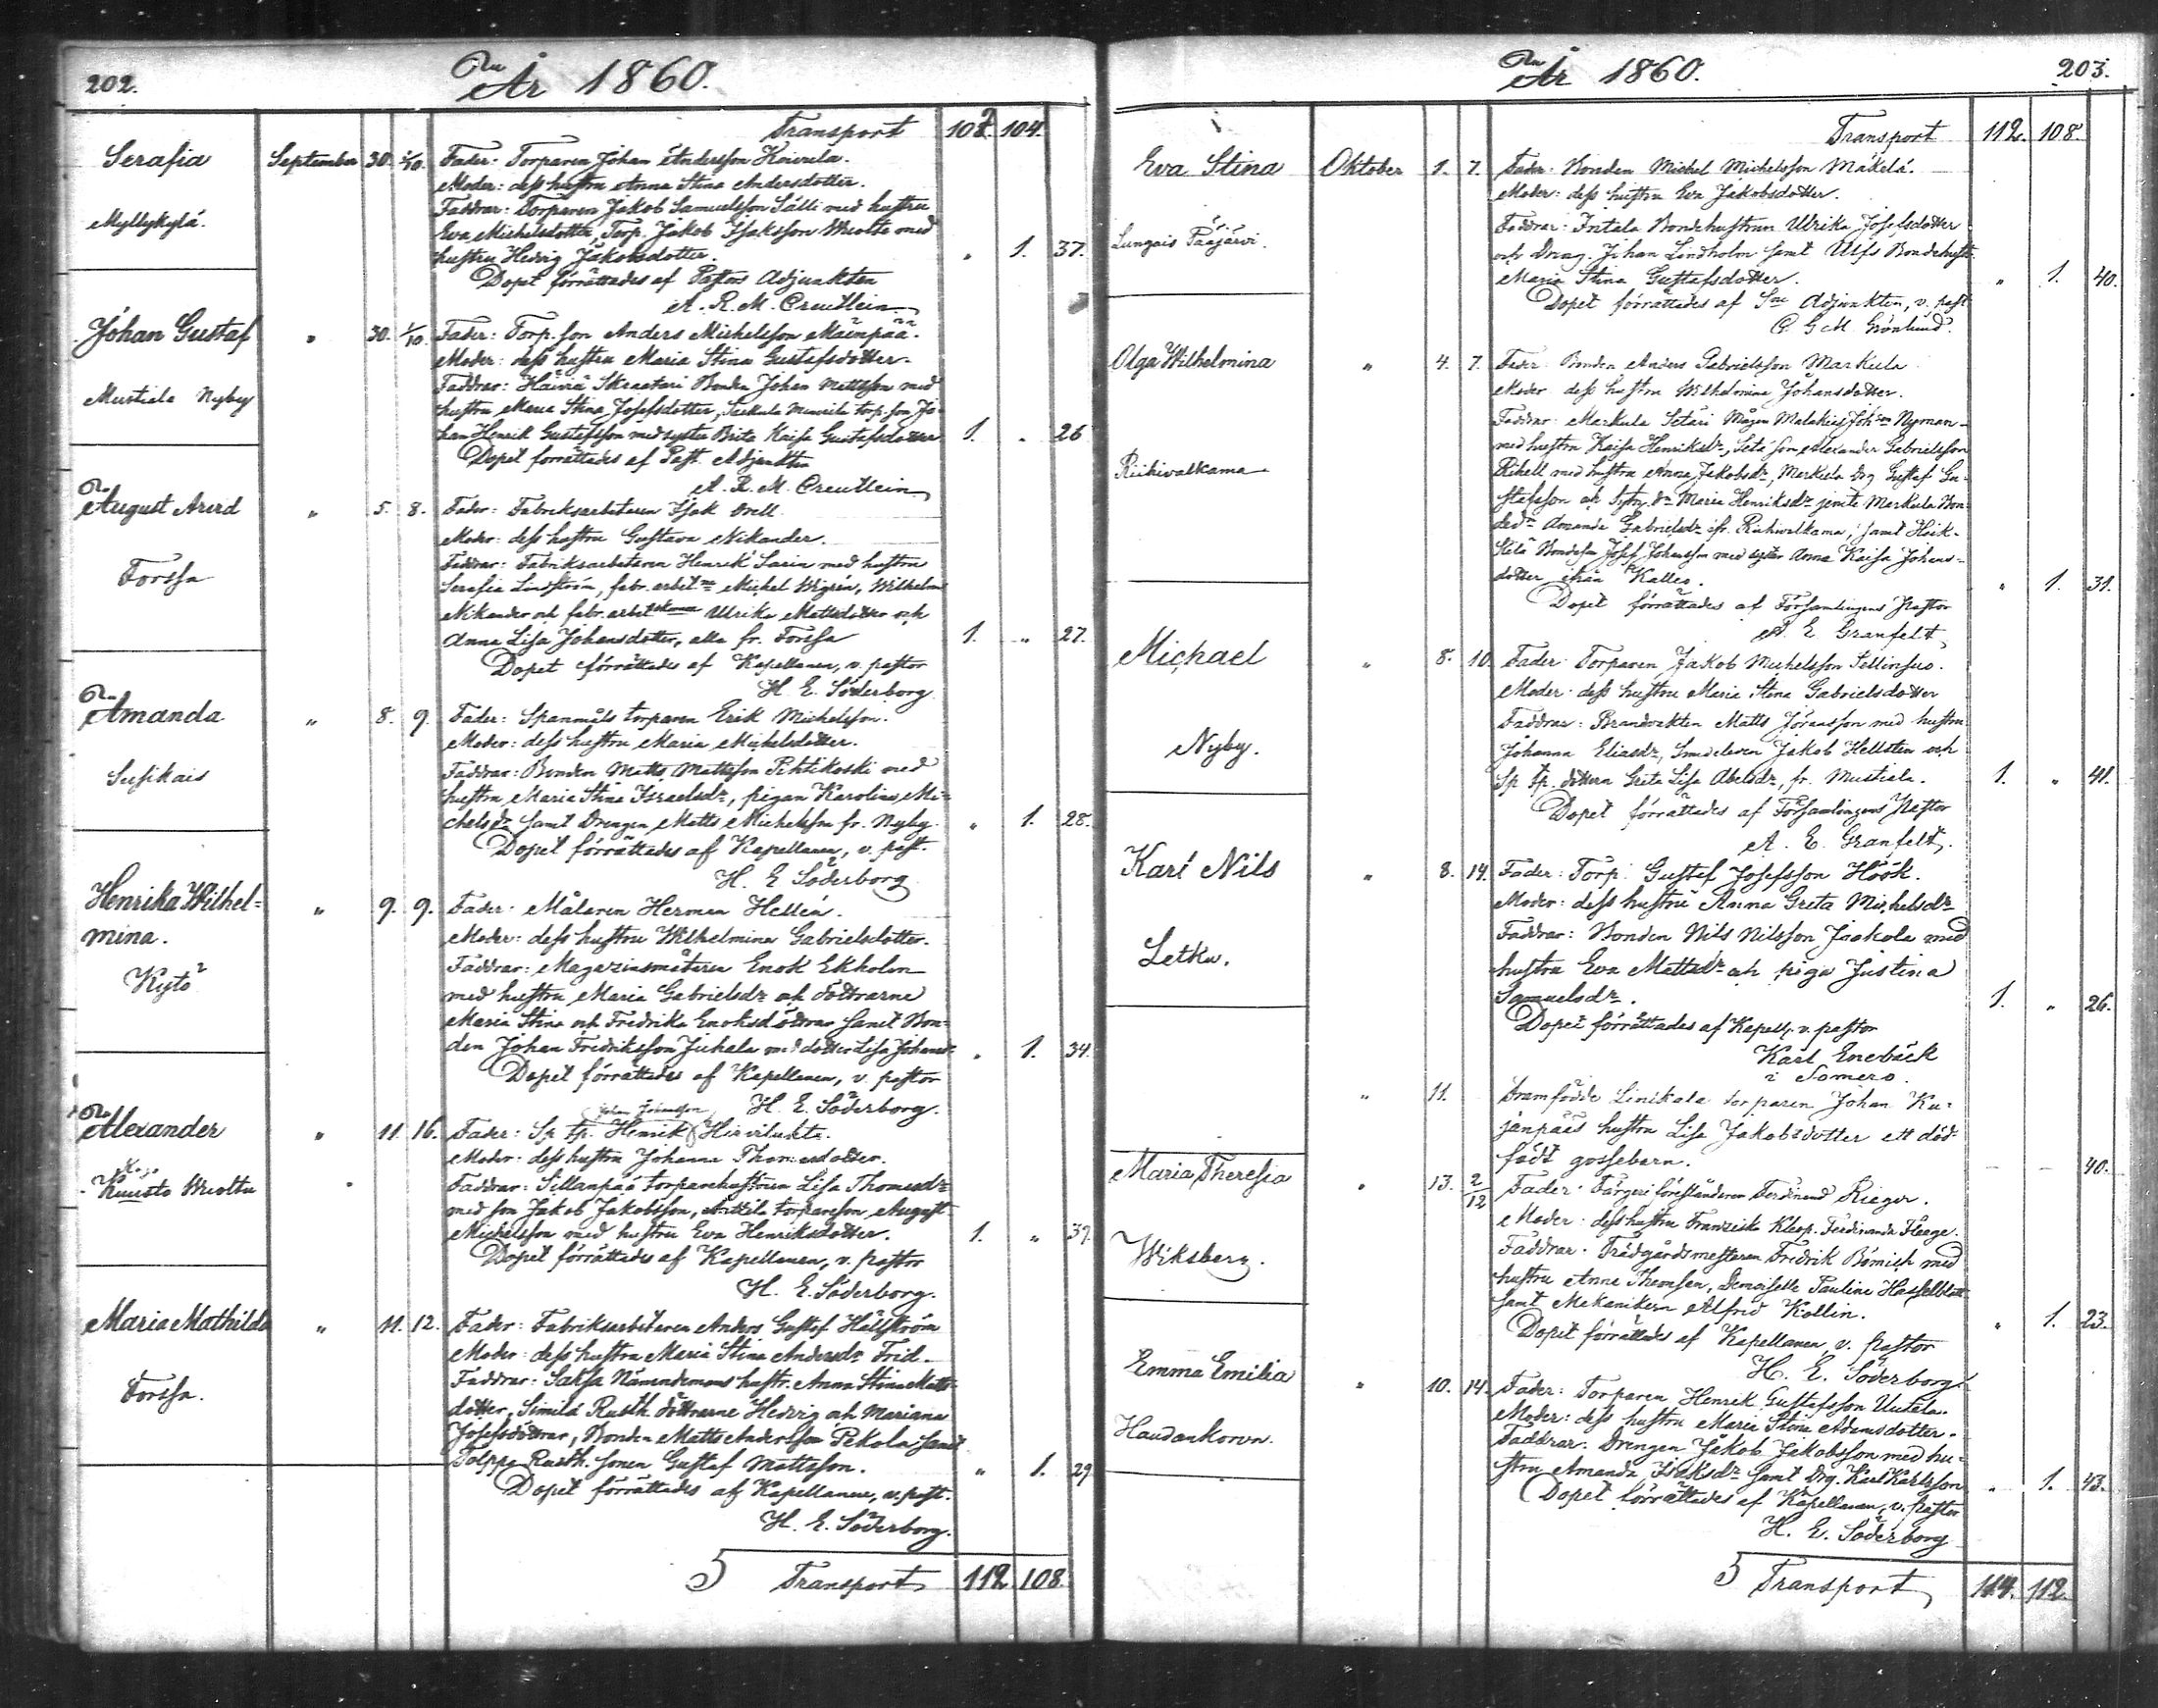 202.
År 1860.
Transport 102. 104.
Serafia September 30. 1/10. Fader: Torparen Johan Andersson Koivula.
Moder: dess hustru Anna Stina Andersdotter.
Myllykylä. Faddrar: Torparen Jakob Samuelsson Sälli med hustru
Eva Michelsdotter, Torp. Jakob Isaksson med
hustru Hedvig Jakobsdotter. " 1. 37.
Dopet förrättades af Pastors Adjunkten
A. R. M. Creutlein
Johan Gustaf " 30. 1/10. Fader: Torp. son Anders Michelsson Mäenpää.
Moder: dess hustru Maria Stina Gustafsdotter.
Mustiala Nyby Faddrar: Skraatari Bonden Johan Mattsson med
hustru Maria Stina Josefsdotter, torp. son Jo-
han Henrik Gustafsson med syster Brita Kaisa Gustafsdotter 1. " 26
Dopet förrättades af Past. Adjunkten
A. R. M. Creutlein
August Arvid " 5. 8. Fader: Fabriksarbetaren Isak
Moder: dess hustru Gustava Nikander.
Forssa Faddrar: Fabriksarbetaren Henrik Sarin med hustru
Serafia Lindström, fabr. arbit:ne Michel Wigrén, Wilhelm
Nikander och fabr. arbit Ulrika Mattsdotter och
Anna Lisa Johansdotter, alla fr. Forssa 1. " 27.
Dopet förrättades af Kapellanen, v. pastor
H. E. Söderborg.
Amanda " 8. 9. Fader: Spanmåls torparen Erik Michelsson.
Moder: dess hustru Maria Michelsdotter.
Susikais Faddrar: Bonden Matts Mattsson Pihtikoski med
hustru Maria Stina Israelsdr, pigan Karolina Mi-
chelsdr samt Drengen Matts Michelsson fr. Nyby. " 1. 28.
Dopet förrättades af Kapellanen, v. past.
H. E. Söderborg
Henrika Wilhel- " 9. 9. Fader: Målaren Herman Hellén.
mina. Moder: dess hustru Wilhelmina Gabrielsdotter.
Kytö Faddrar: Magazinsmätaren Enok Ekholm
med hustru Maria Gabrielsdr och döttrarne
Maria Stina och Fredrika Enoksdöttrar samt Bon-
den Johan Fredriksson Juhala med dotter Lisa Johansdr " 1. 34.
Dopet förrättades af Kapellanen, v. pastor
H. E. Söderborg.
Johan Johansson
Alexander " 11. 16. Fader: Sp. tp. Henrik Hirvilukta.
Moder: dess hustru Johanna Thomasdotter.
Faddrar: Sillanpää torparehustrun Lisa Thomasdr
med son Jakob Jakobsson, Anttila torpareson August
Michelsson med hustru Eva Henriksdotter. 1. " 39.
Dopet förrättades af Kapellanen, v. pastor
H. E. Söderborg.
Maria Mathilda " 11. 12. Fader: Fabriksarbetaren Anders Gustaf Hällström
Moder: dess hustru Maria Stina Andersdr Frid.
Forssa. Faddrar: Saksa Nämndemans hustr. Anna Stina Matts-
dotter, Simila Rusth. döttrarne Hedvig och Mariana
Josefsdöttrar, Bonden Matts Andersson Pekola samt
Tolppa Rusth. sonen Gustaf Mattsson. " 1. 29
Dopet förrättades af Kapellanen, v. past.
H. E. Söderborg.
5 Transport 112. 108.
År 1860. 203.
Transport 112. 108.
Eva Stina Oktober 1. 7. Fader: Bonden Michel Michelsson Mäkelä.
Moder: dess hustru Eva Jakobsdotter.
Lungais Pääjärvi. Faddrar: Intala Bondehustrun Ulrika Josefsdotter
och Dreng. Johan Lindholm samt Ulfs Bondehustr.
Maria Stina Gustafsdotter. " 1. 40.
Dopet förrättades af Adjunkten, v. past
C. G. M. Grönlund.
Olga Wilhelmina " 4. 7. Fader: Bonden Anders Gabrielsson Markula
Moder dess hustru Wilhelmina Johansdotter.
Faddrar: Markula Setäri Mågen Malakias Johsson Nyman
med hustru Kaisa Henriksdr, Setä son Alexander Gabrielsson
Riihivalkama med hustru Anna Jakobsdr, Markula Drg Gustaf Gu-
stafsson och Maria Henriksdr jemte Markula Bon-
dedr Amanda Gabrielsdr ifr. Riihivalkama, samt Hoik-
Bondeson Josef Johansson med syster Anna Kaisa Johans-
dotter ifrån Kallio. " 1. 31.
Dopet förrättades af Församlingens Pastor
A. E. Granfelt
Michael " 8. 10. Fader: Torparen Jakob Michelsson
Moder: dess hustru Maria Stina Gabrielsdotter
Nyby. Faddrar: Brandvakten Matts Göransson med hustru
Johanna Eliasdr, Smedeleven Jakob Hellsten och
Sp. tp. dottern Greta Lisa Abelsdr, fr. Mustiala. 1. " 41.
Dopet förrättades af Församlingens Pastor
A. E. Granfelt.
Karl Nils " 8. 14. Fader: Torp. Gustaf Josefsson Höök.
Moder: dess hustru Anna Greta Michelsdr
Letku. Faddrar: Bonden Nils Nilsson Jaakola med
hustru Eva Mattsdr och piga Justina
Samuelsdr. 1. " 26.
Dopet förrättades af Kapell. v. pastor
Karl Enebäck
i Somero.
" 11. Framfödde Linikala torparen Johan Ku-
janpääs hustru Lisa Jakobsdotter ett död-
födt gossebarn. 40.
Maria Theresia " 13. 2/12 Fader: Färgeriföreståndaren Ferdinand Rieger.
Moder: dess hustru Franziska Kleop. Ferdinanda Fleege.
Wiksberg. Faddrar: Trädgårdsmästaren Fredrik Bömich med
hustru Anna Thomsen, Demoiselle Pauline Hasselblatt
samt Mekanikern Alfred Kollin. " 1. 23.
Dopet förrättades af Kapellanen, v. pastor
H. E. Söderborg.
Emma Emilia " 10. 14. Fader: Torparen Henrik Gustafsson Uutela.
Moder: dess hustru Maria Stina Adamsdotter.
Haudankorva. Faddrar: Drengen Jakob Jakobsson med hu-
stru Amanda Isaksdr samt Drg. Karl Karlsson " 1. 43.
Dopet förrättades af Kapellanen, v. Pastor
H. E. Söderborg
5 Transport 114. 112.